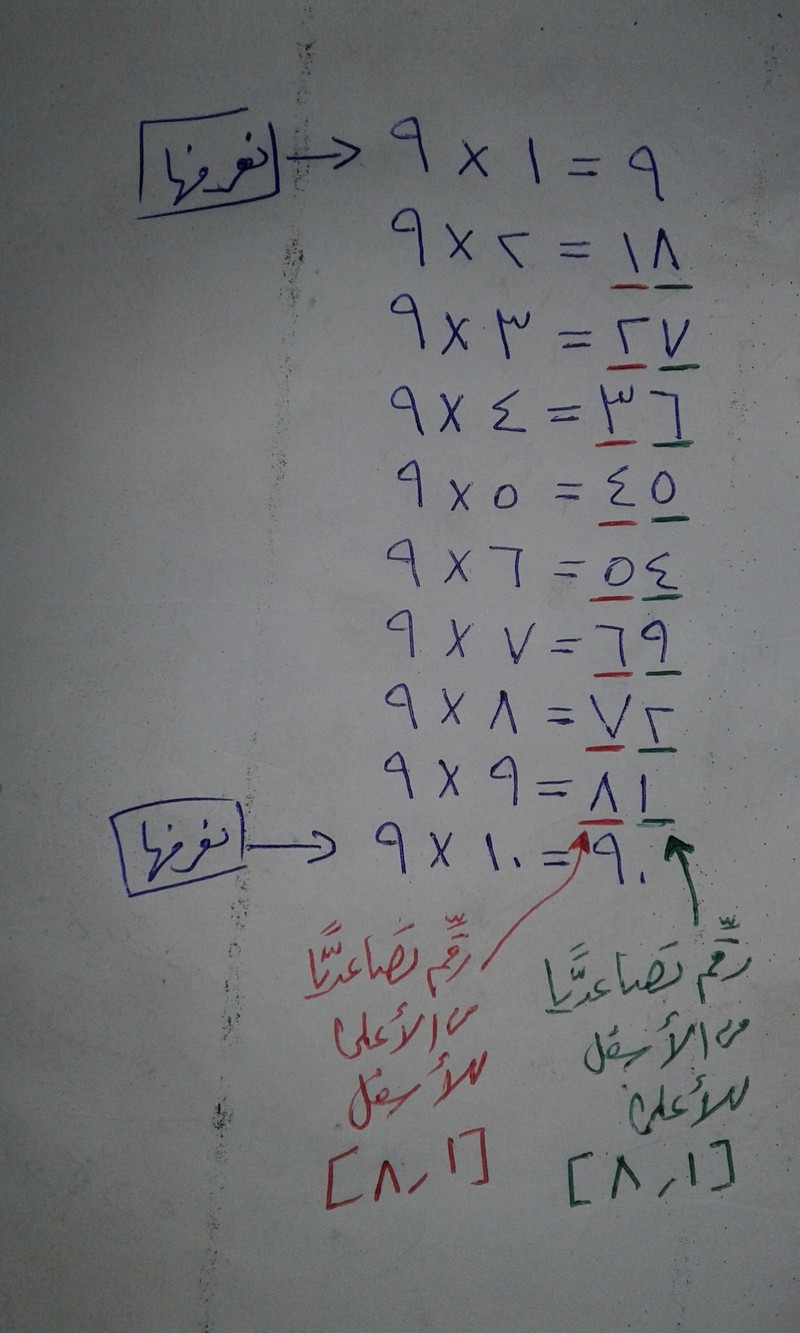 نعرفها → ٩ × ١ = ٩
٩ × ٢ = ١٨
٩ × ٣ = ٢٧
٩ × ٤ = ٣٦
٩ × ٥ = ٤٥
٩ × ٦ = ٥٤
٩ × ٧ = ٦٩
٩ × ٨ = ٧٢
٩ × ٩ = ٨١
نعرفها → ٩ × ١٠ = ٩٠
رَقِّم تَصاعديًّا
من الأسفل
للأعلى
[٨,١]
رَقِّم تَصاعديًّا
من الأعلى
للأسفل
[٨,١]